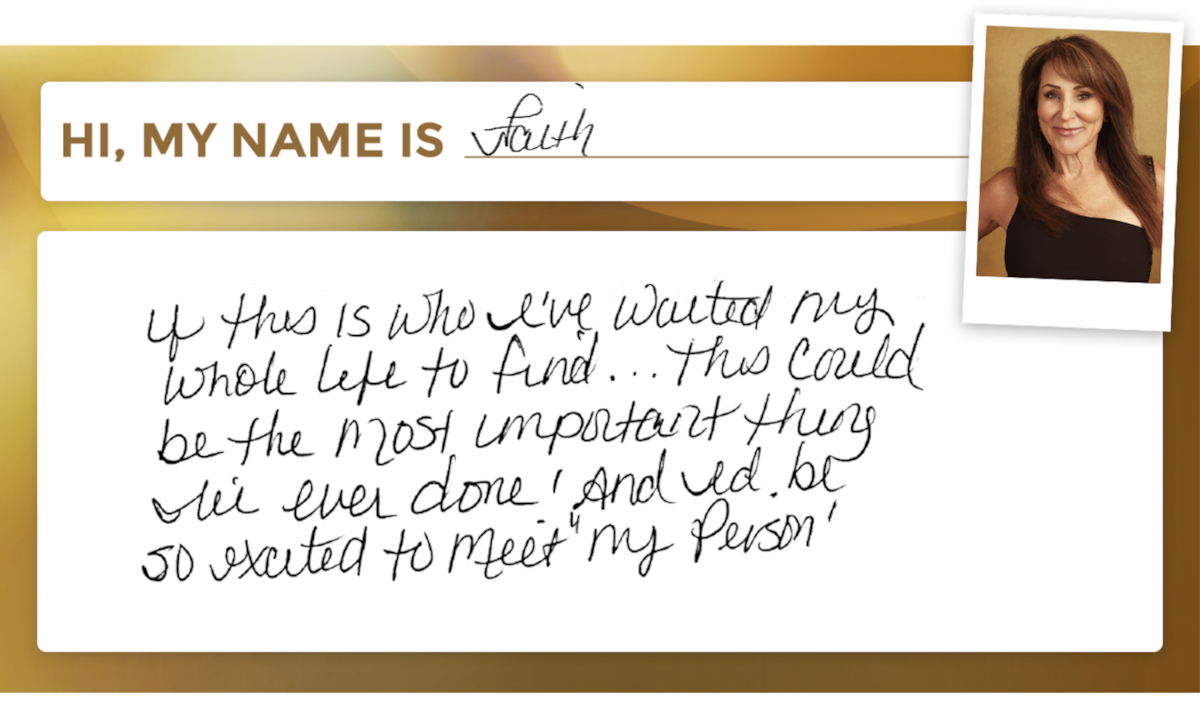 HI, MY NAME IS Faith
If this is who I've waited my
whole life to find... This could
be the most important thing
I've ever done! And I'd be
so excited to meet "my Person'